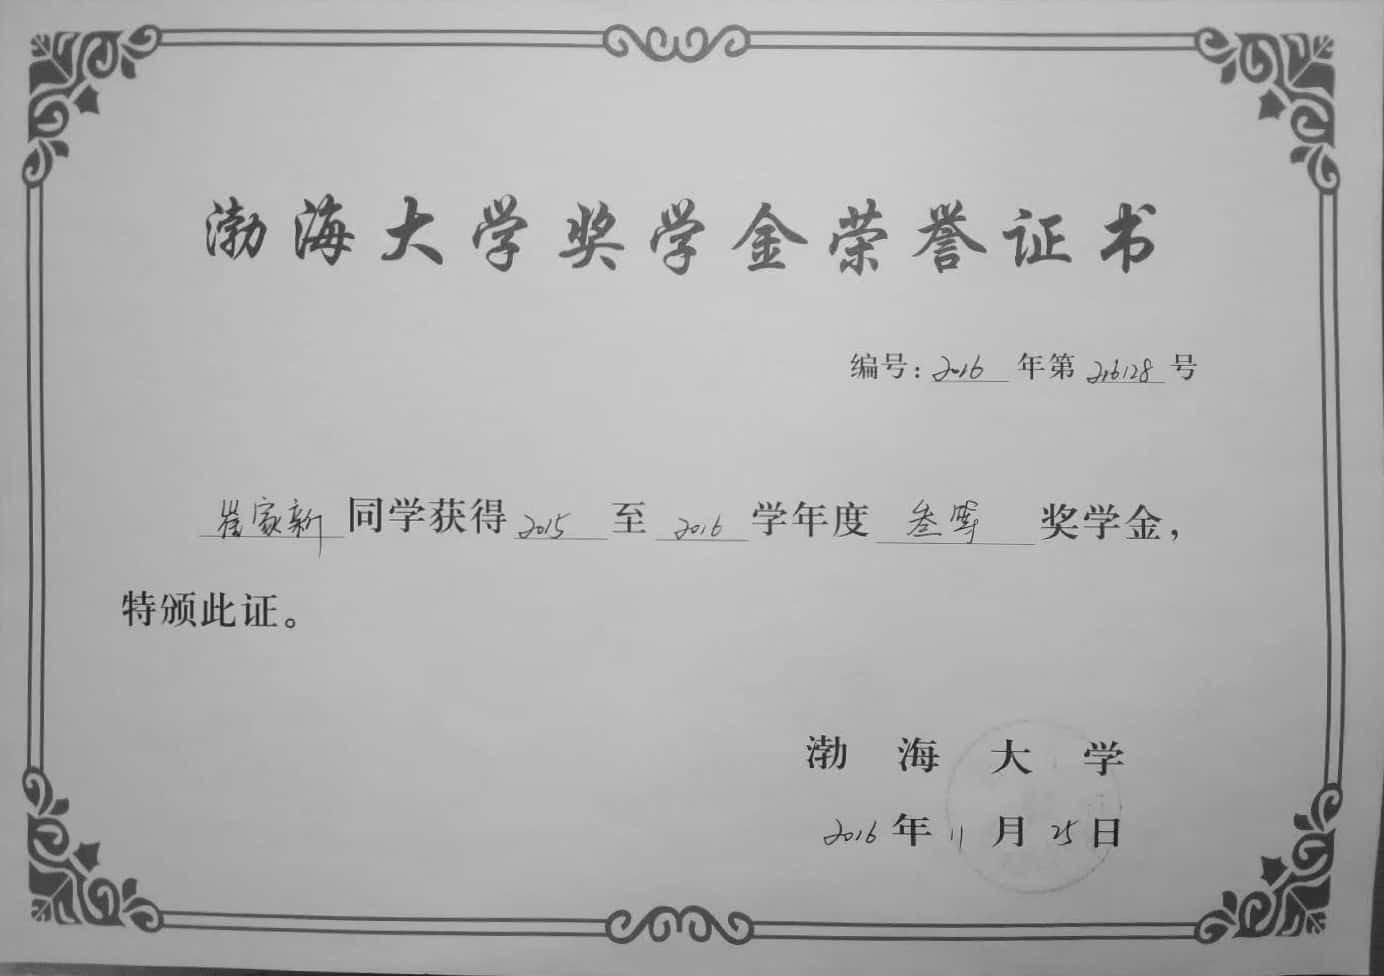 渤海大学奖学金荣誉证书
编号：2016 年第 216128 号
崔家新 同学获得 2015 至 2016 学年度 叁等 奖学金，
特颁此证。
渤海大学
2016 年 11 月 25 日